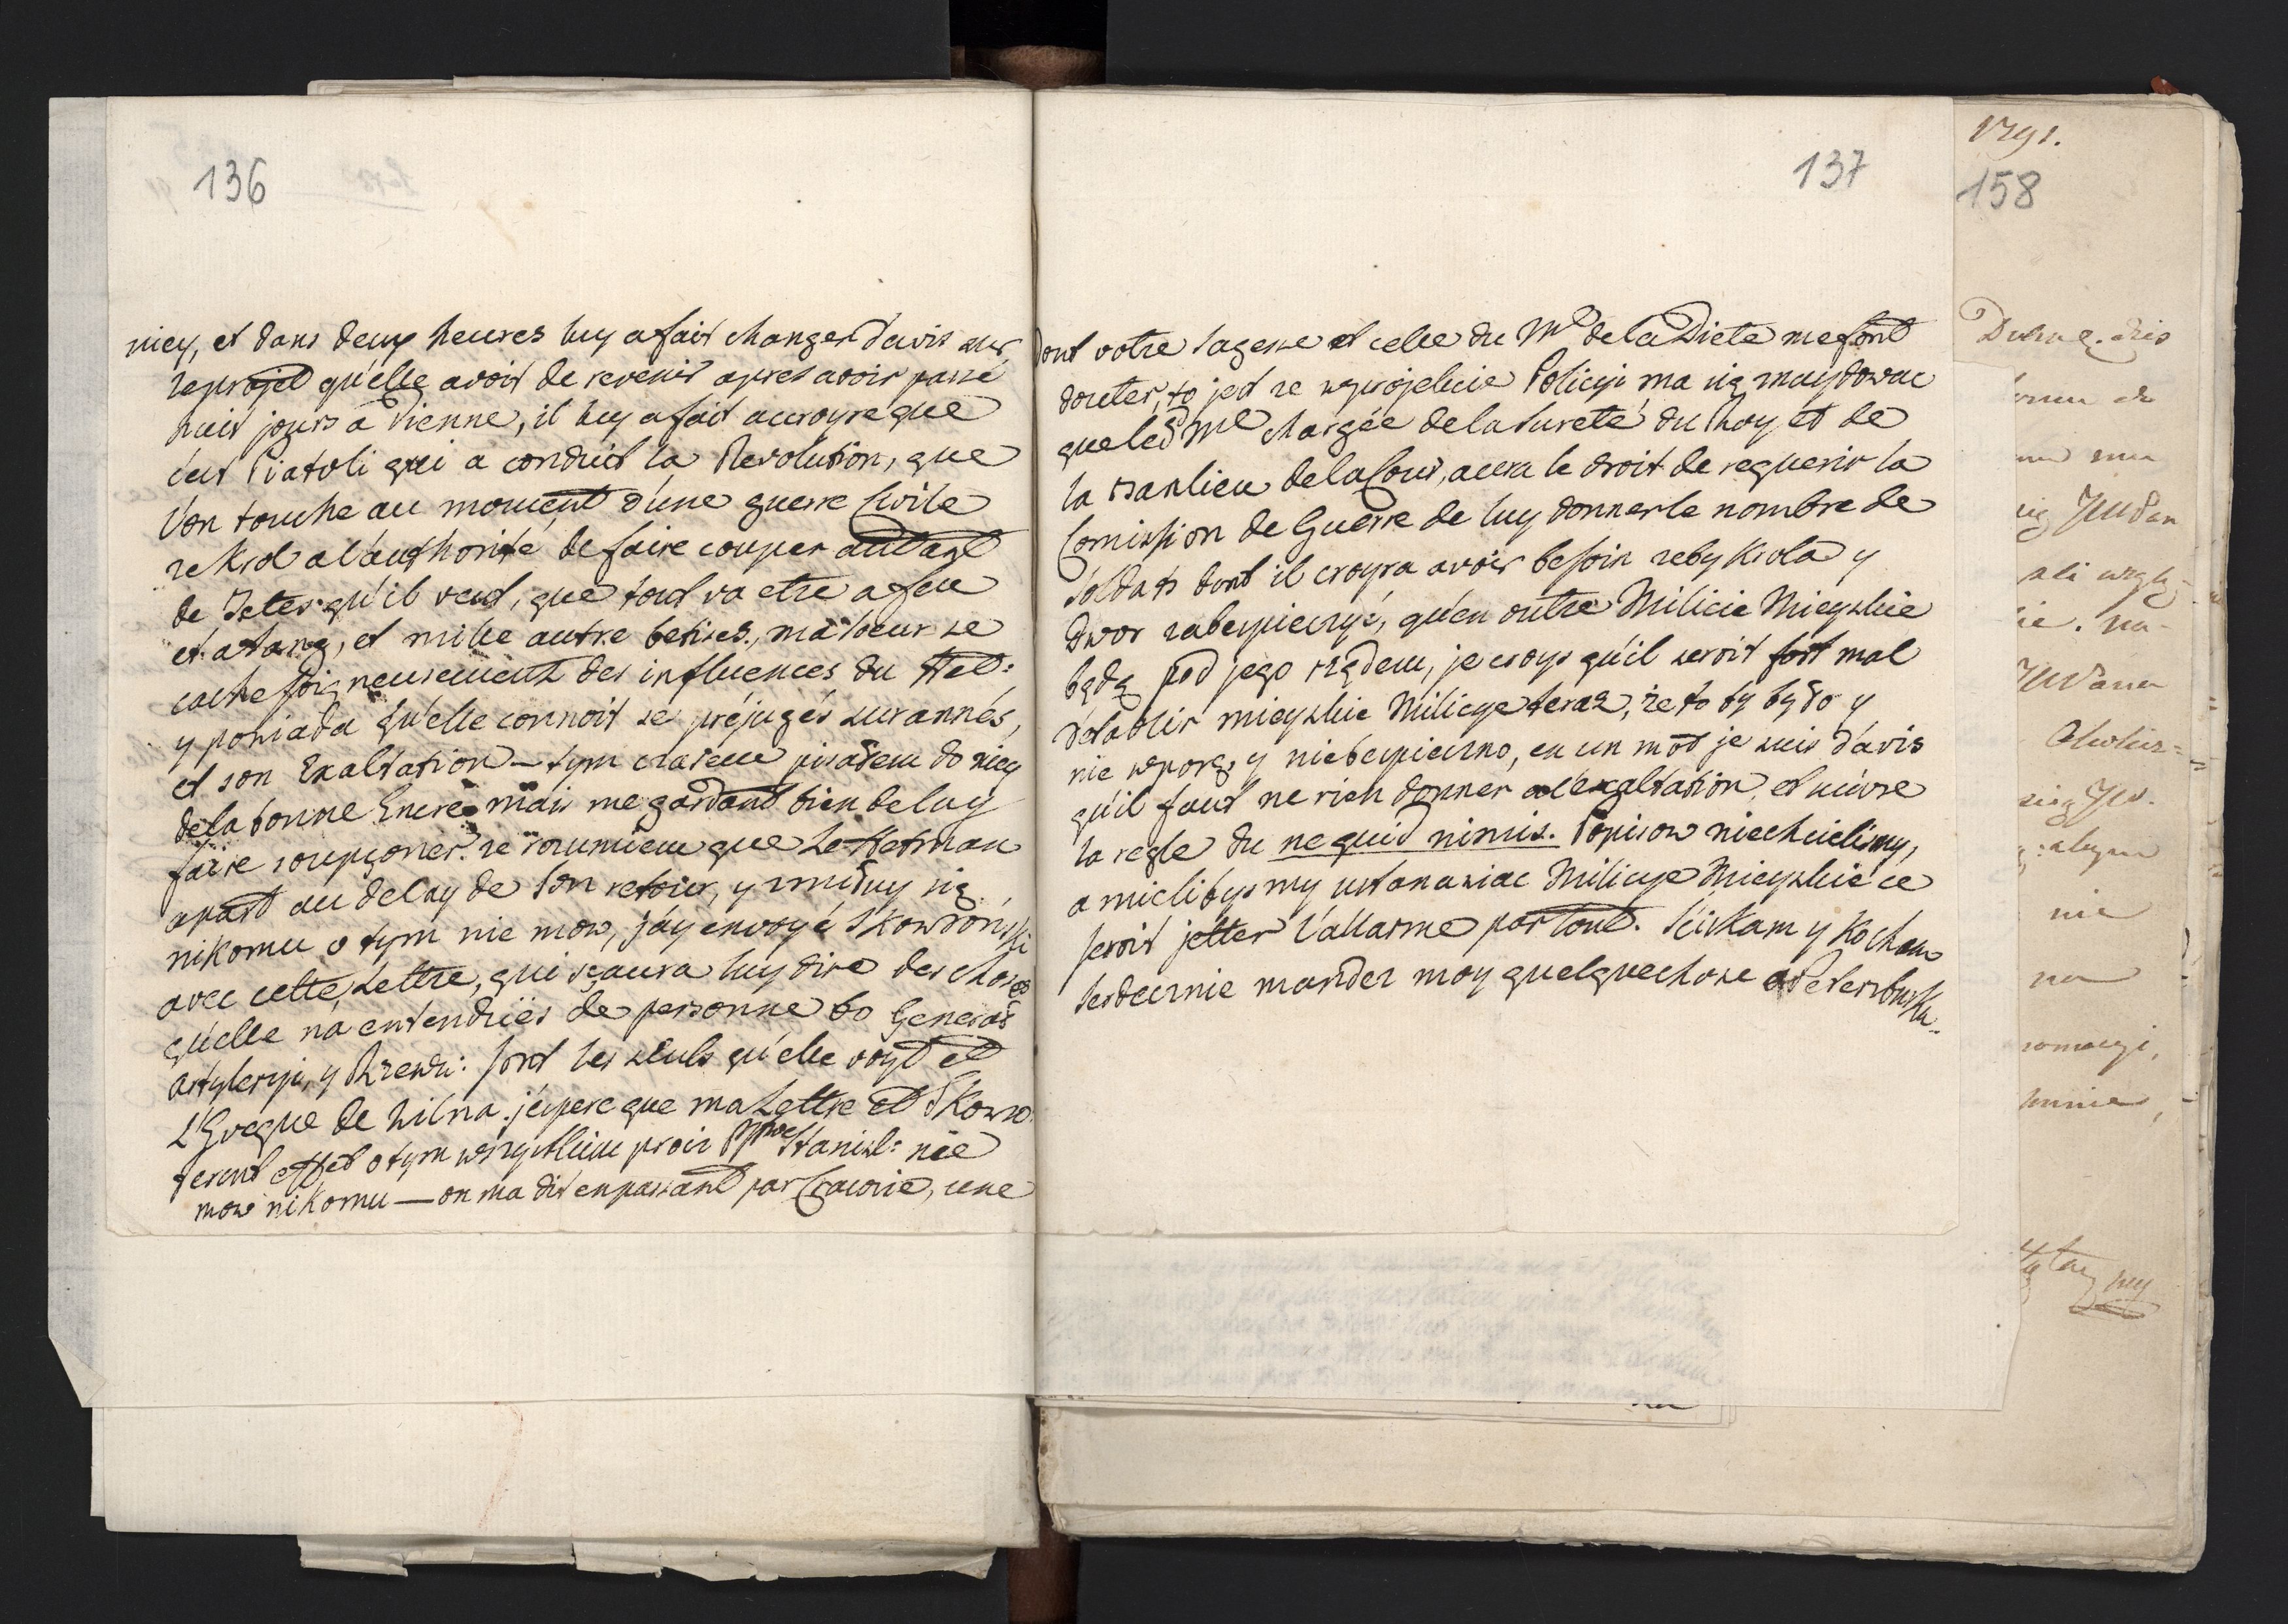 136
niey, et dans deux heures luy a fait changer d'avis sur
le projet qu'elle avoit de revenir apres avoir passé
huit jours a Vienne, il luy a fait accroyre que
c'est Piatoli qui a conduit la Revolution, que
l'on touche au moment d'une guerre Civile
ze Krol a l'authorité de faire couper autant
de Tetes qu'il veut, que tout va etre a feu
et a sang, et mille autre betises, ma soeur se
cache soigneusement des influences du Het:
y poniada qu'elle connoit ses préjugés surannés,
et son Exaltation — tym czasem pisałem do niey
de la bonne Encre mais me gardant bien de luy
faire soupçoner ze rozumiem que Le Hetman
a part au delay de son retour, y zmiłuy się
nikomu o tym nie mow, j'ay envoyé Skowronski
avec cette Lettre, qui sçaura luy dire des choses
qu'elle n'a entendües de personne bo Generał
Artyleryi, y Rzewu: sont les seuls qu'elle voyt et
L'Eveque de Wilna. j'espere que ma Lettre et Skowro
feront effet o tym wszystkim procz Stanisl: nie
mow nikomu — on m'a dit en passant par Cracovie, une
137
dont votre sagesse et celle du Ml de la Diete me font
douter, to jest ze w projekcie Policyi ma się znaydowac
que led Ml chargée de la sureté du Roy et de
la banlieu de la Cour, aura le droit de requerir la
Comission de Guerre de luy donner le nombre de
Soldats dont il croyra avoir besoin zeby Krola y
Dwor zabespieczyć, qu'en outre Milicie Mieyskie
będą pod jego rządem, je croys qu'il seroit fort mal
d'etablir mieyskie Milicye teraz, ze to by było y
nie w porę, y niebespieczno, en un mot je suis d'avis
qu'il faut ne rien donner a l'exaltation, et suivre
la regle du ne quid nimis. Popisow niechcielismy,
a mielibysmy ustanawiac Milicye Mieyskie ce
seroit jetter l'allarme par tout. Sciskam y Kocham
serdecznie mander moy quelque chose a Petersbursku
1791.
158